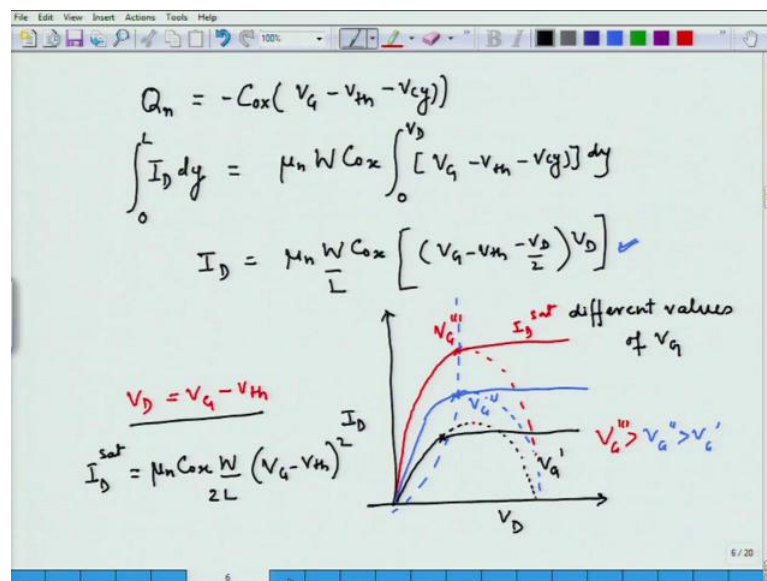 File Edit View Insert Actions Tools Help
100%
B I
Qn = -Cox( VG - Vth - V(y))
∫₀ᴸ ID dy = μn W Cox ∫₀^VD [VG - Vth - V(y)] dy
ID = μn W/L Cox [(VG - Vth - VD/2) VD] ✓
VG''' ID^sat different values
of VG
VD = VG - Vth
VG''
ID
VG'''> VG'' > VG'
ID^sat = μn Cox W/2L (VG - Vth)²
VG'
VD
6 / 20
6